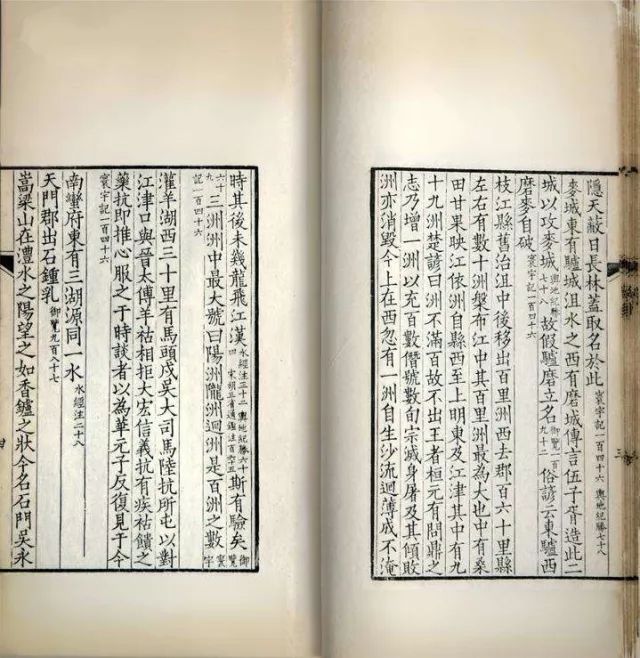 隱天蔽日長林蓋取名於此寰宇記一百四十六輿地紀勝七十八
麥城東有驢城沮水之西有磨城傳言伍子胥造此二
城以攻麥城輿地紀勝七十八故假驢磨立名御覽一百九十二俗諺云東驢西
磨麥自破寰宇記一百四十六
枝江縣舊治沮中後移出百里洲西去郡百六十里縣
左右有數十洲槃布江中其百里洲最為大也中有桑
田甘果映江依洲自縣西至上明東及江津其中有九
十九洲楚諺曰洲不滿百故不出王者桓元有問鼎之
志乃增一洲以充百數僭號數旬宗滅身屠及其傾敗
洲亦消毀今上在西忽有一洲自生沙流迴薄成不淹
時其後未幾龍飛江漢水經注三十二輿地紀勝六十四宋胡三省通鑑注百六五斯有驗矣御覽
六十九三洲洲中最大號曰陽洲隴洲迴洲是百洲之數寰宇
記一百四十六
灌羊湖西三十里有馬頭戍吳大司馬陸抗所屯以對
江津口與晉太傅羊祜相拒大宏信義抗有疾祜饋之
藥抗即推心服之于時談者以為華元子反復見于今
寰宇記一百四十六
南蠻府東有三湖源同一水水經注二十八
天門郡出石鍾乳御覽九百八十七
嵩梁山在澧水之陽望之如香鑪之狀今名石門吳永